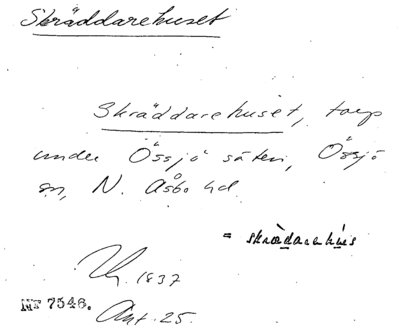 Skräddarehuset
Skräddarehuset, torp
under Össjö säteri, Össjö
sn, N. Åsbo hd.
= skrädarehus
1837
NF 7546.
Ant. 25.